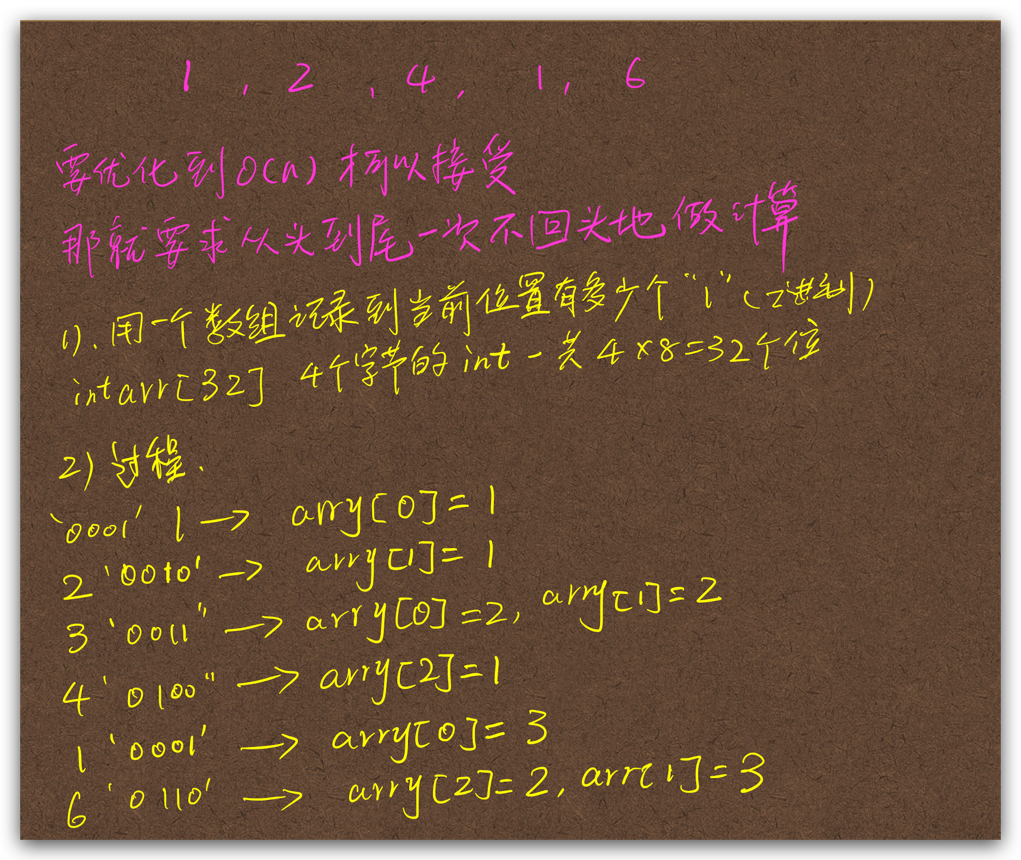 1 , 2 , 4 , 1 , 6
要优化到O(n)才可以接受
那就要求从头到尾一次不回头地做计算
1). 用一个数组记录到当前位置有多少个“1”(二进制)
int arr[32] 4个字节的int一共4×8=32个位
2) 过程.
'0001' 1 → arry[0]=1
2 '0010' → arry[1]=1
3 '0011" → arry[0]=2, arry[1]=2
4 '0100" → arry[2]=1
1 '0001' → arry[0]=3
6 '0110' → arry[2]=2, arr[1]=3